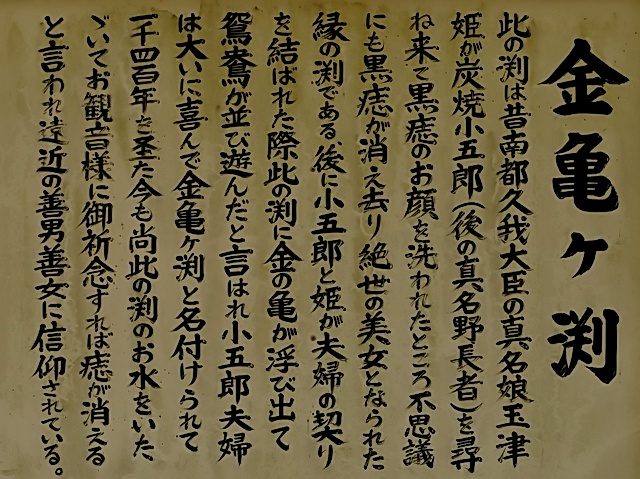 金亀ヶ渕
此の渕は昔南都久我大臣の真名娘玉津
姫が炭焼小五郎(後の真名野長者)を尋
ね来て黒痣のお顔を洗われたところ不思議
にも黒痣が消え去り絶世の美女となられた
縁の渕である、後に小五郎と姫が夫婦の契り
を結ばれた際此の渕に金の亀が浮び出て
鴛鴦が並び遊んだと言はれ小五郎夫婦
は大いに喜んで金亀ヶ渕と名付けられて
一千四百年を至た今も尚此の渕のお水をいた
ゞいてお観音様に御祈念すれば痣が消える
と言われ遠近の善男善女に信仰されている。